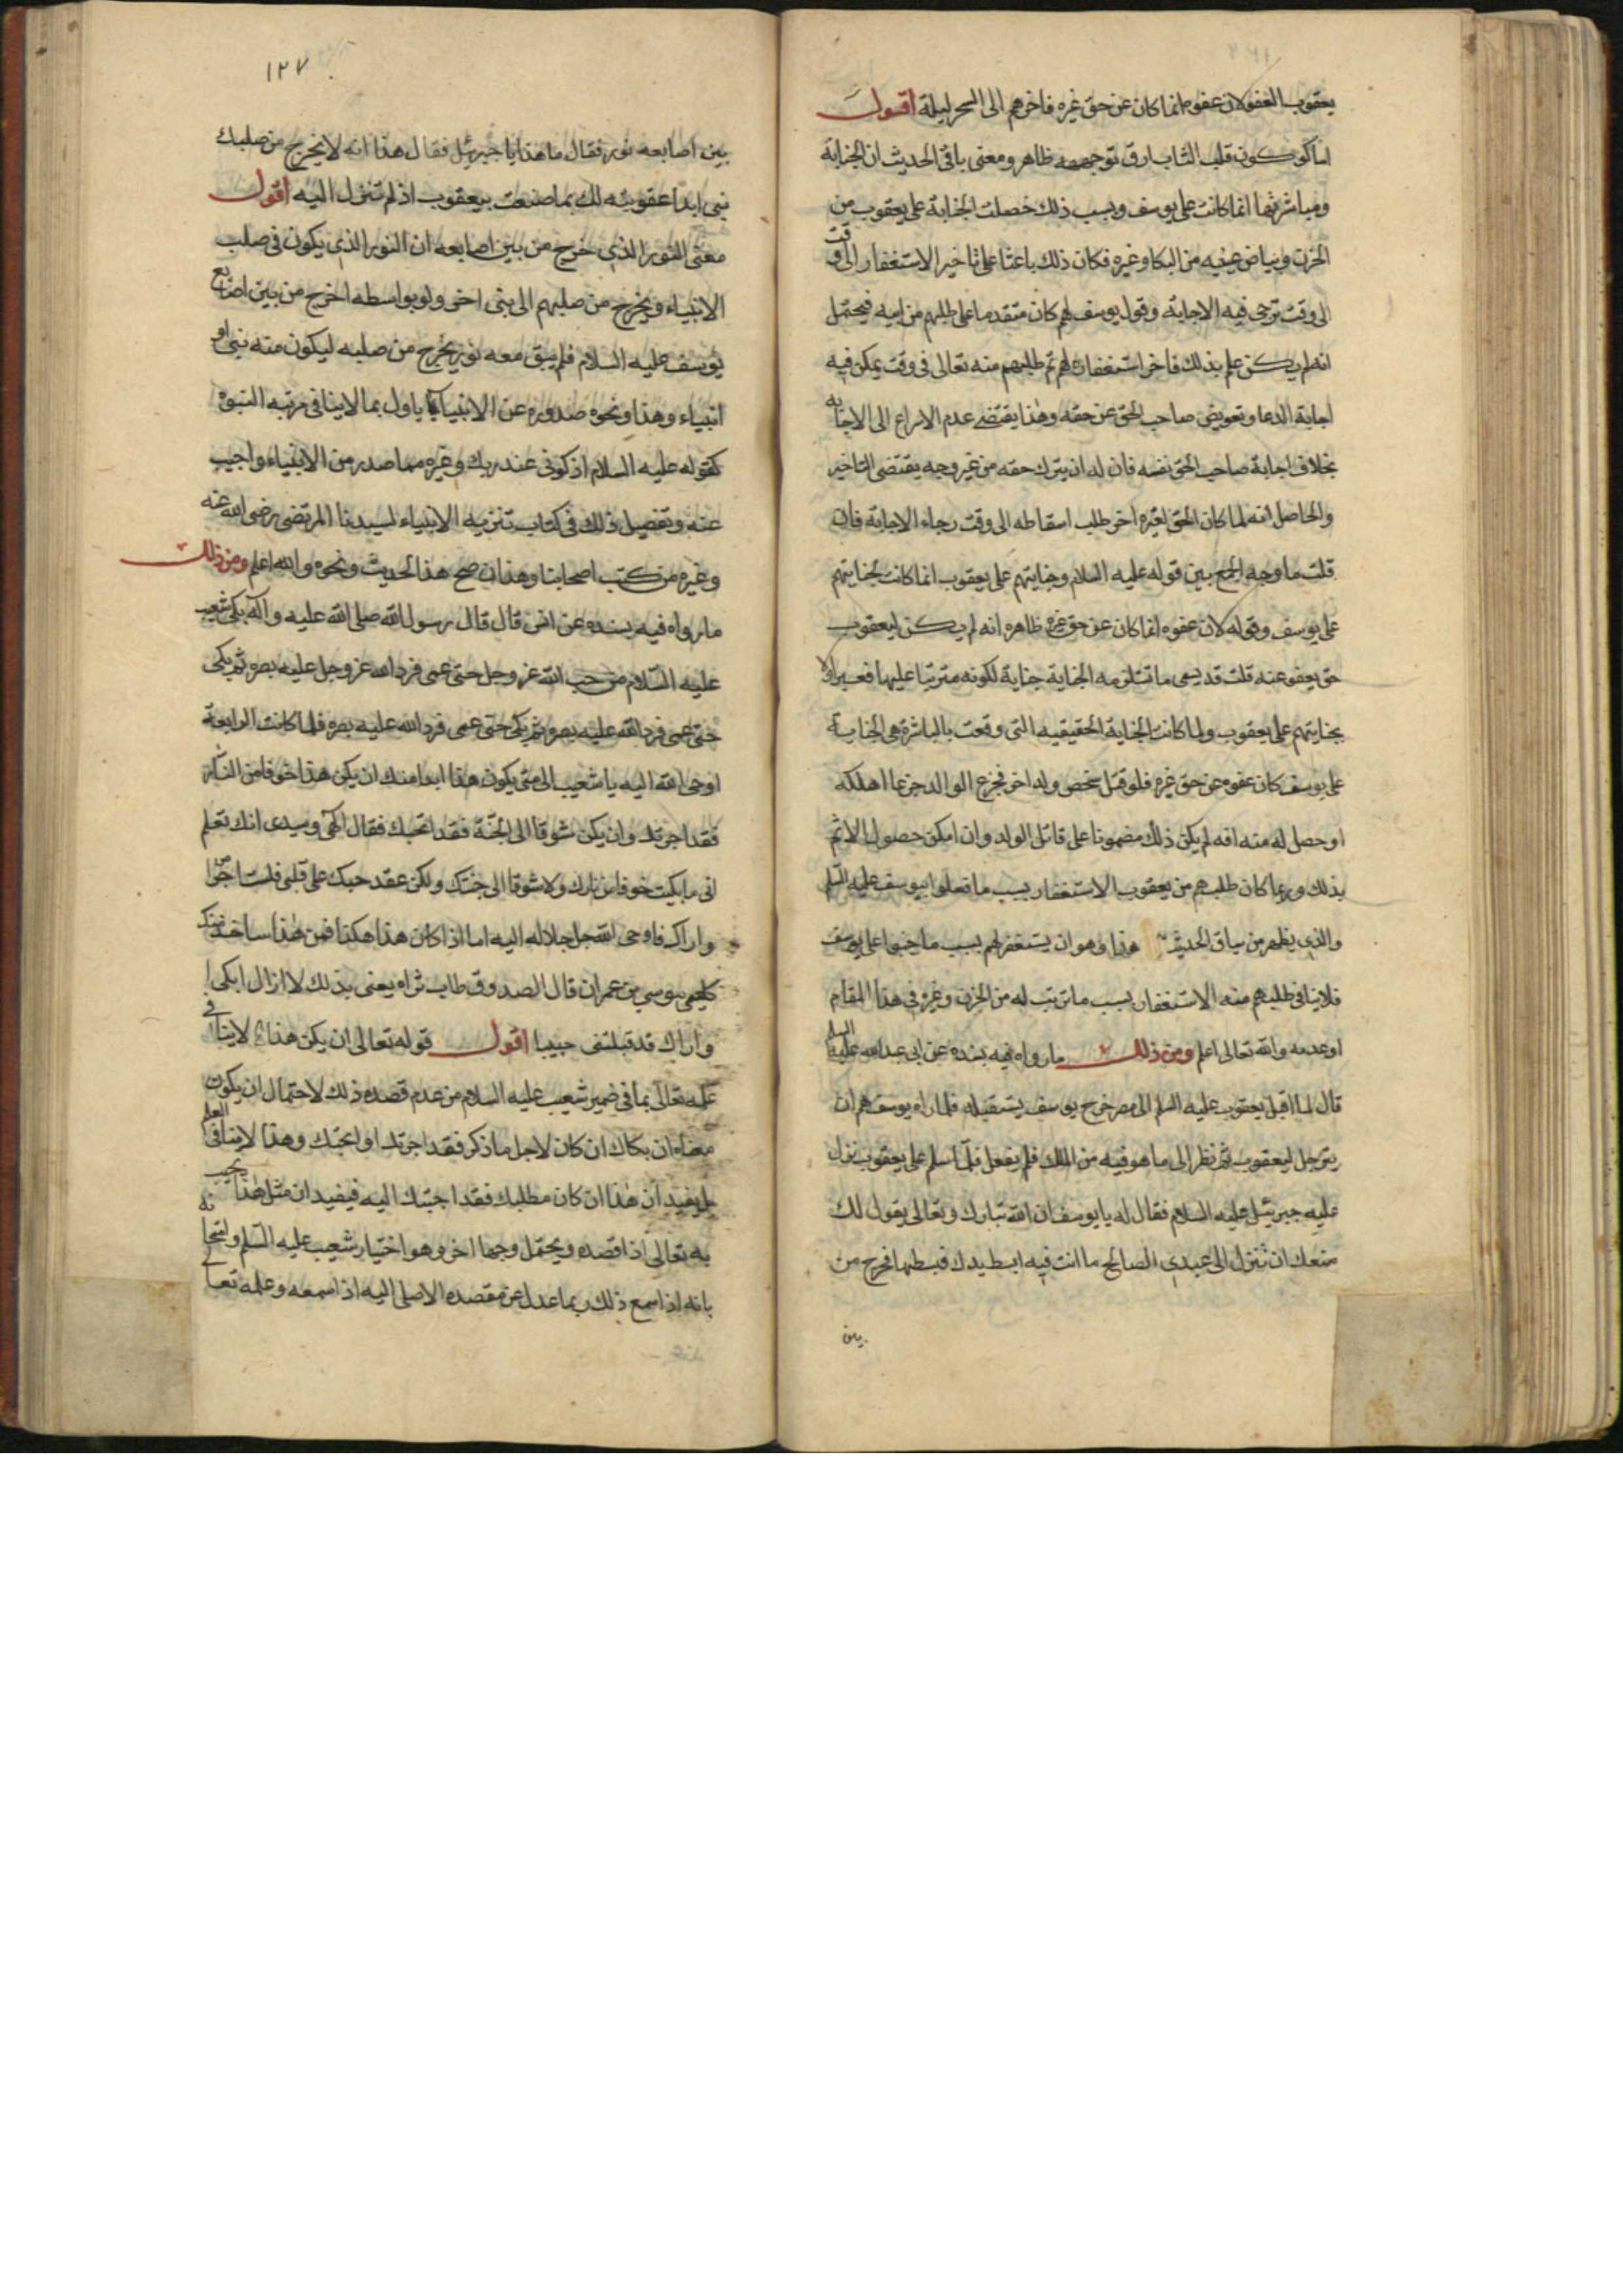 يعقوب العفو لان عفوه انما كان عن حق غيره فاخرهم الى السحر ليلة اقول
اما كون قلب الشاب ارق توجيهه ظاهر ومعنى باقى الحديث ان الجناية
ومباشرتها انما كانت على يوسف وبسبب ذلك حصلت الجناية على يعقوب من
الحزن وبياض عينيه من البكا وغيره فكان ذلك باعثا على تاخير الاستغفار الى وقت
الى وقت ترجى فيه الاجابة وقول يوسف لهم كان متقدما على طلبهم من ابيه فيحتمل
انه لم يكن علم بذلك فاخر استغفاره لهم ثم طلبهم منه تعالى فى وقت يمكن فيه
اجابة الدعا وتعويض صاحب الحق عن حقه وهذا يقتضى عدم الاسراع الى الاجابه
بخلاف اجابة صاحب الحق نفسه فان له ان يترك حقه من غير وجه يقتضى التاخير
والحاصل انه لما كان الحق لغيره اخر طلب اسقاطه الى وقت رجاء الاجابة فان
قلت ما وجه الجمع بين قوله عليه السلام وجنايتهم على يعقوب انما كانت بجنايتهم
على يوسف وقوله لان عفوه انما كان عن حق غيره ظاهره انه لم يكن ليعقوب
حق يعفو عنه قلت قد يسمى ما تستلزمه الجناية جناية لكونه مترتبا عليها فعبر اولا
بجنايتهم على يعقوب ولما كانت الجناية الحقيقيه التى وقعت بالمباشرة هى الجناية
على يوسف كان عفوه عن حق غيره فلو قتل شخص ولد اخر فجزع الوالد جزعا اهلكه
او حصل له منه افه لم يكن ذلك مضمونا على قاتل الولد وان امكن حصول الاثم
بذلك وربما كان طلبهم من يعقوب الاستغفار بسبب ما فعلوا بيوسف عليه السلم
والذى يظهر من سياق الحديث هذا وهو ان يستغفر لهم بسبب ما جنوا على يوسف
فلا ينافى طلبهم منه الاستغفار بسبب ما ترتب له من الحزن وغيره فى هذا المقام
او عدمه والله تعالى اعلم ومن ذلك ما رواه فيه بسنده عن ابى عبدالله عليه السلم
قال لما اقبل يعقوب عليه السلم الى مصر خرج يوسف يستقبله فلما راه يوسف هم ان
يترجل ليعقوب ثم نظر الى ما هو فيه من الملك فلم يفعل فلما سلم على يعقوب نزل
عليه جبرئيل عليه السلام فقال له يا يوسف ان الله تبارك وتعالى يقول لك
منعك ان تنزل الى عبدى الصالح ما انت فيه ابسط يدك فبسطها فخرج من
بين
١٢٧
بين اصابعه نور فقال ما هذا يا جبرئيل فقال هذا انه لا يخرج من صلبك
نبى ابدا عقوبته لك بما صنعت بيعقوب اذ لم تنزل اليه اقول
معنى النور الذى خرج من بين اصابعه ان النور الذى يكون فى صلب
الانبياء ويخرج من صلبهم الى نبى اخر ولو بواسطه اخرج من بين اصابع
يوسف عليه السلام فلم يبق معه نور يخرج من صلبه ليكون منه نبى او
انبياء وهذا ونحوه صدوره عن الانبياء ياول بما لا ينافى مرتبه النبوة
كقوله عليه السلام اذكرنى عند ربك وغيره مما صدر من الانبياء واجيب
عنه وتفصيل ذلك فى كتاب تنزيه الانبياء لسيدنا المرتضى رضى الله عنه
وغيره من كتب اصحابنا وهذا ان صح هذا الحديث ونحوه والله اعلم ومن ذلك
ما رواه فيه بسنده عن انس قال قال رسول الله صلى الله عليه واله بكى شعيب
عليه السلام من حب الله عز وجل حتى عمى فرد الله عز وجل عليه بصره ثم بكى
حتى عمى فرد الله عليه بصره ثم بكى حتى عمى فرد الله عليه بصره فلما كانت الرابعة
اوحى الله اليه يا شعيب الى متى يكون هذا ابدا منك ان يكن هذا خوفا من النار
فقد اجرتك وان يكن شوقا الى الجنة فقد ابحتك فقال الهى وسيدى انك تعلم
انى ما بكيت خوفا من نارك ولا شوقا الى جنتك ولكن عقد حبك على قلبى فلست اصبر
او اراك فاوحى الله جل جلاله اليه اما اذا كان هذا هكذا فمن هذا ساخدمك
كليمى موسى بن عمران قال الصدوق طاب ثراه يعنى بذلك لا ازال ابكى
او اراك قد قبلتنى حبيبا اقول قوله تعالى ان يكن هذا لا ينافى
علمه تعالى بما فى ضمير شعيب عليه السلام من عدم قصده ذلك لاحتمال ان يكون
معناه ان بكاك ان كان لاجل ما ذكر فقد اجرتك او ابحتك وهذا لا ينافى العلم
بل يفيد ان هذا ان كان مطلبك فقد اجبتك اليه فيفيد ان مثل هذا يجيب
به تعالى اذا قصده ويحتمل وجها اخر وهو اختيار شعيب عليه السلم وامتحانه
بانه اذا سمع ذلك ربما عدل عن مقصده الاصلى اليه اذا سمعه وعلمه تعالى